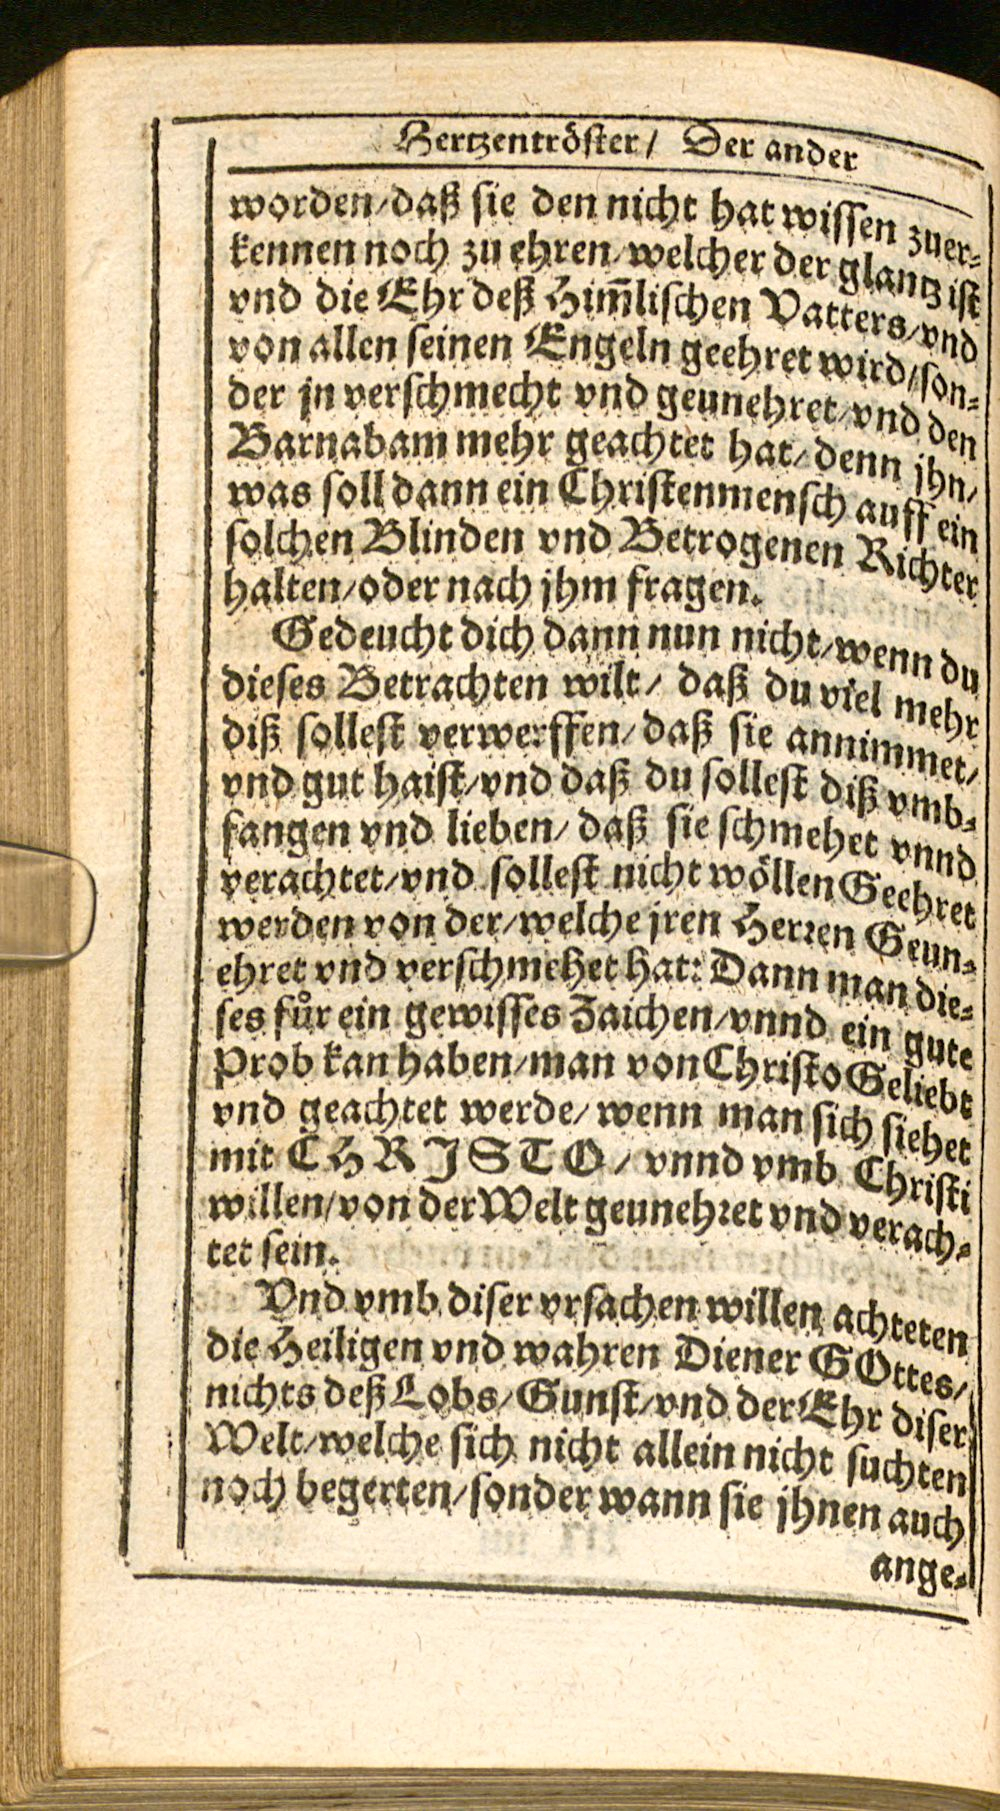 Hertzentröster / Der ander
worden/daß sie den nicht hat wissen zuer-
kennen noch zu ehren/welcher der glantz ist
vnd die Ehr deß Him̃lischen Vatters/vnd
von allen seinen Engeln geehret wird/son-
der jn verschmecht vnd geunehret/vnd den
Barnabam mehr geachtet hat/denn jhn/
was soll dann ein Christenmensch auff ein
solchen Blinden vnd Betrogenen Richter
halten/oder nach jhm fragen.
Gedeucht dich dann nun nicht/wenn du
dieses Betrachten wilt/ daß du viel mehr
diß sollest verwerffen/daß sie annimmet/
vnd gut haist/vnd daß du sollest diß vmb-
fangen vnd lieben/ daß sie schmehet vnnd
verachtet/vnd sollest nicht wöllen Geehret
werden von der/welche jren Herren Geun-
ehret vnd verschmehet hat: Dann man die-
ses fůr ein gewisses Zaichen/vnnd ein gute
Prob kan haben/man von Christo Geliebt
vnd geachtet werde/ wenn man sich siehet
mit CHRISTO/ vnnd vmb Christi
willen/von der Welt geunehret vnd verach-
tet sein.
Vnd vmb diser vrsachen willen achteten
die Heiligen vnd wahren Diener GOttes/
nichts deß Lobs/Gunst/vnd der Ehr diser
Welt/welche sich nicht allein nicht suchten
noch begerten/sonder wann sie jhnen auch
ange-